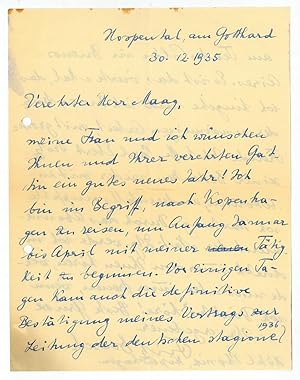 Hospental, am Gotthard
30. 12. 1935.
Verehrter Herr Maag,
meine Frau und ich wünschen
Ihnen und Ihrer verehrten Gat-
tin ein gutes neues Jahr! Ich
bin im Begriff, nach Kopenha-
gen zu reisen, um Anfang Januar
bis April mit meiner neuen Tätig
keit zu beginnen. Vor einigen Ta-
gen kam auch die definitive
Bestätigung meines Vertrags zur
1936
Leitung der deutschen stagione/